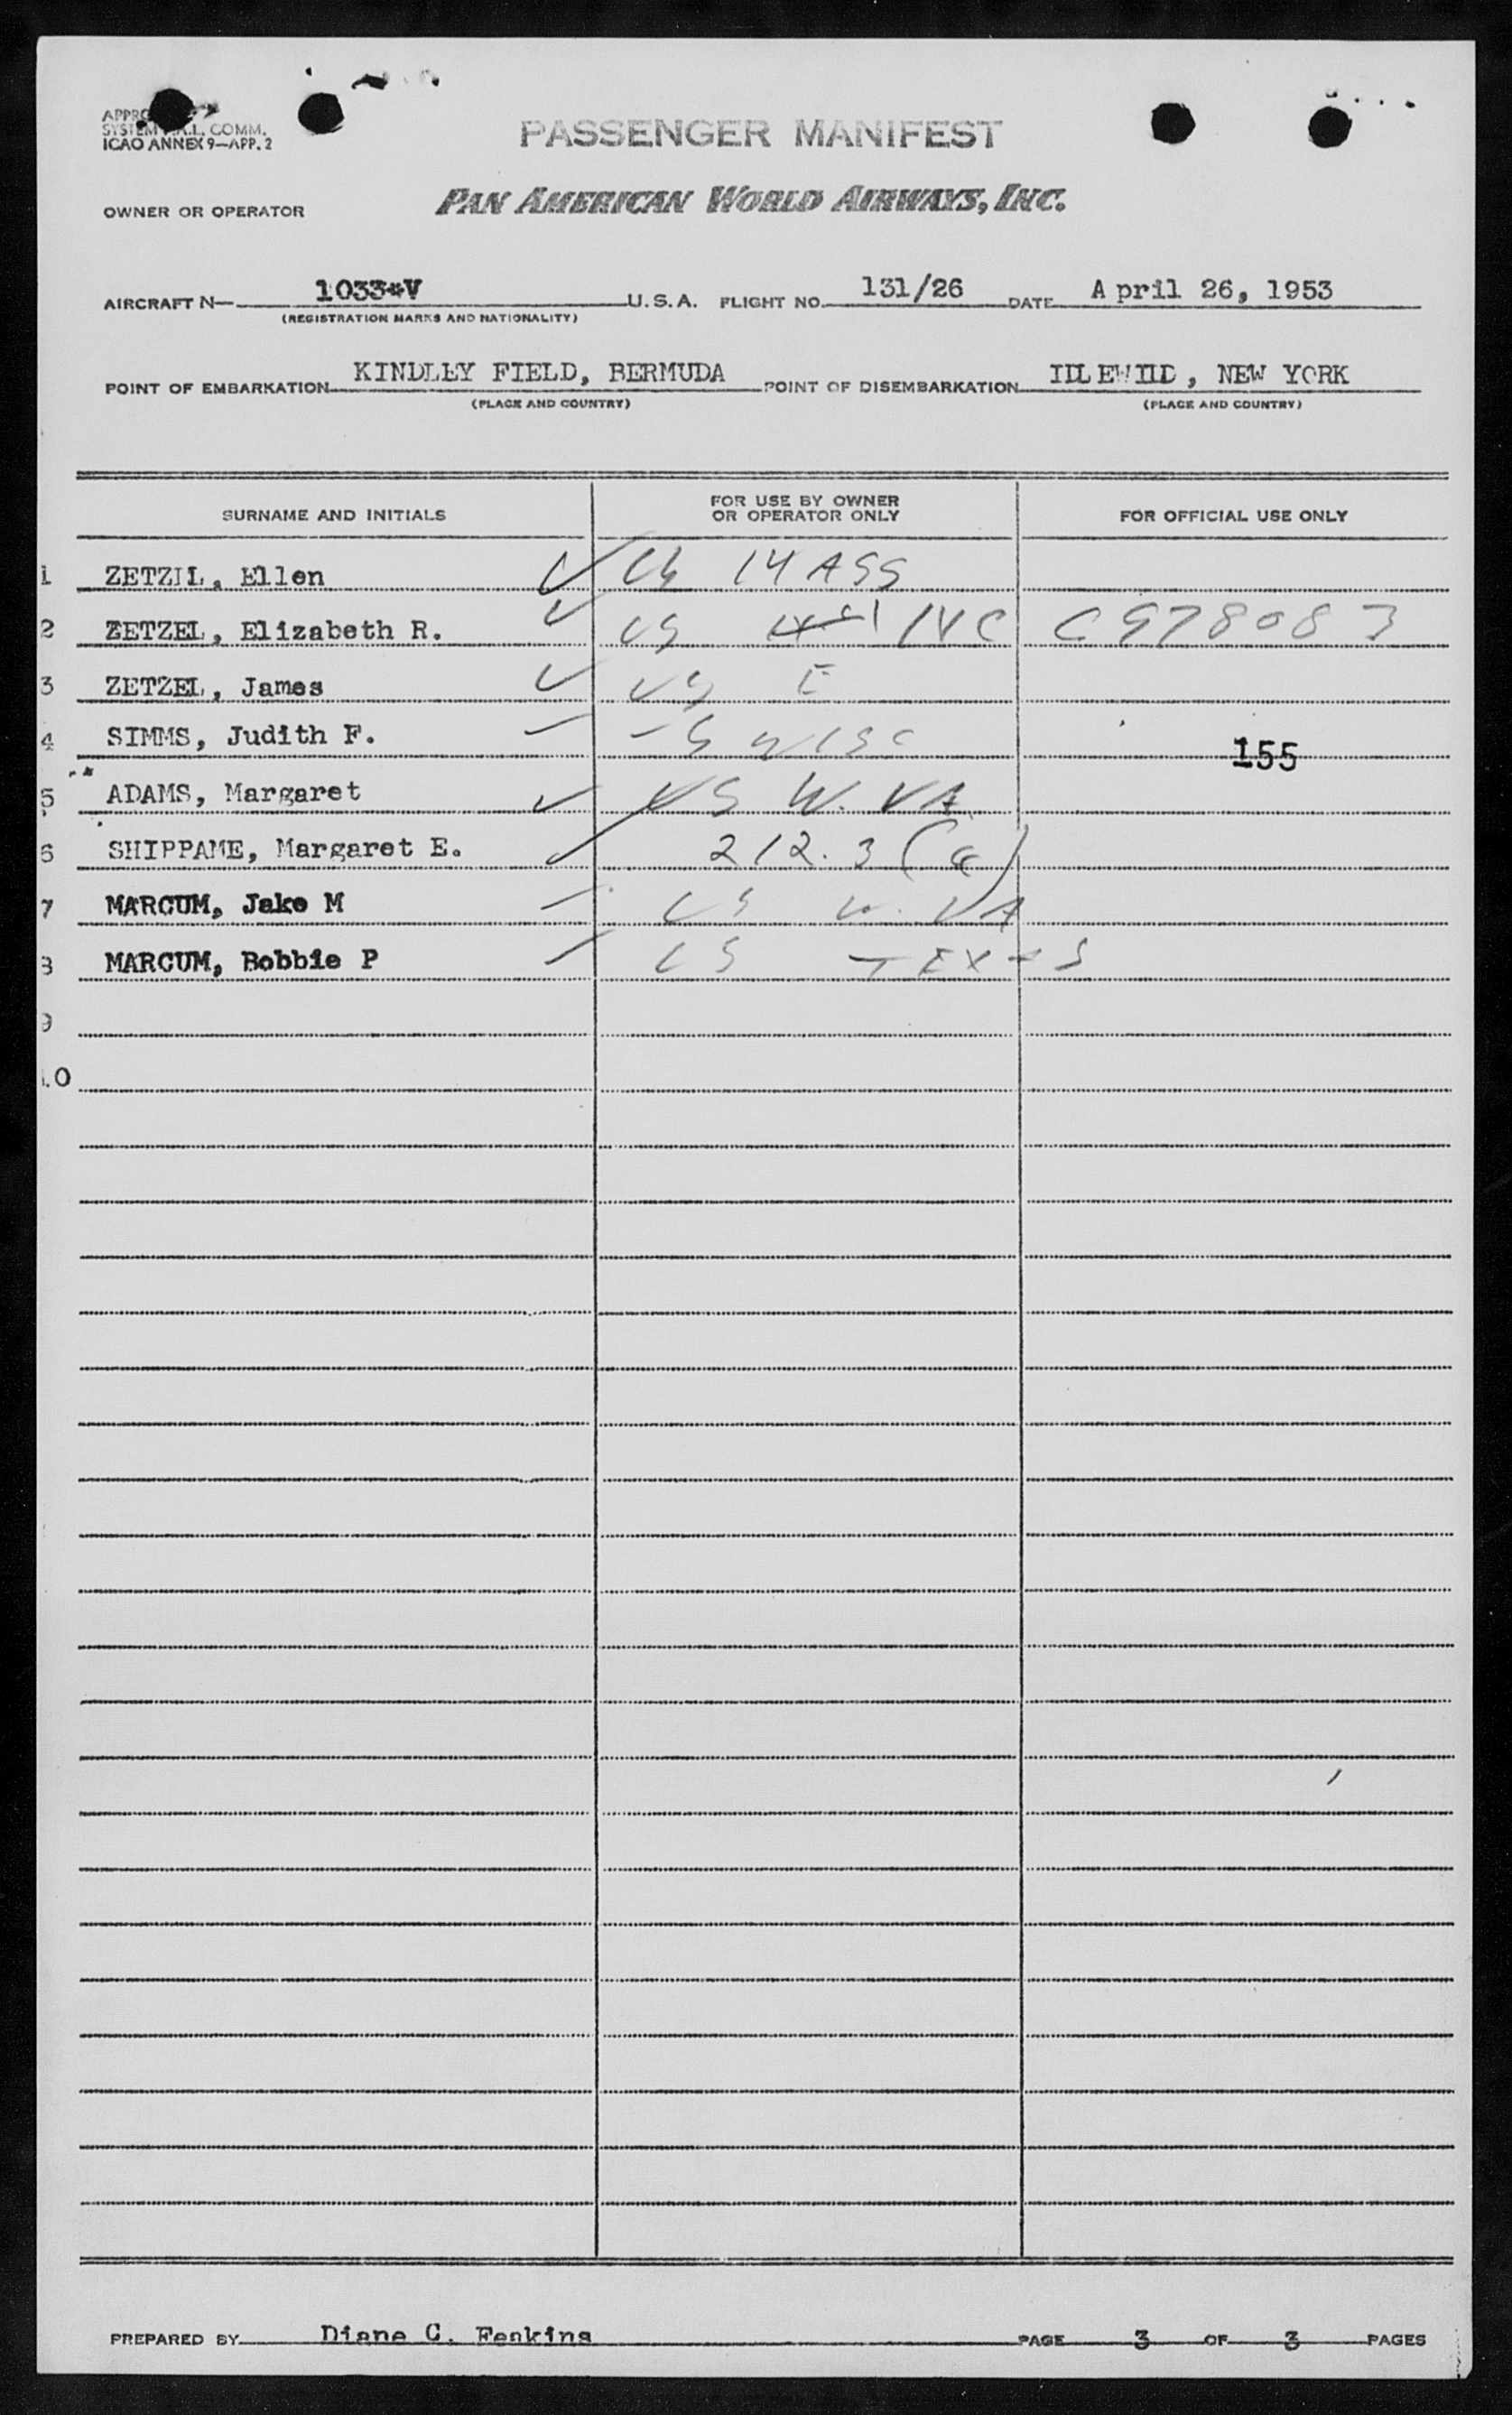 ICAO ANNEX 9—APP. 2
PASSENGER MANIFEST
OWNER OR OPERATOR PAN AMERICAN WORLD AIRWAYS, INC.
AIRCRAFT N— U.S.A. FLIGHT NO. 131/26 DATE April 26, 1953
(REGISTRATION MARKS AND NATIONALITY)
POINT OF EMBARKATION KINDLEY FIELD, BERMUDA POINT OF DISEMBARKATION IDLEWILD, NEW YORK
(PLACE AND COUNTRY) (PLACE AND COUNTRY)
SURNAME AND INITIALS FOR USE BY OWNER OR OPERATOR ONLY FOR OFFICIAL USE ONLY
1 ZETZIL, Ellen US MASS
2 ZETZEL, Elizabeth R. US
3 ZETZEL, James US
4 SIMMS, Judith F. WISC 155
5 ADAMS, Margaret US W. VA
6 SHIPPAME, Margaret E. 212.3
7 MARCUM, Jake M US W. VA
8 MARCUM, Bobbie P US TEXAS
9
10
PREPARED BY Diane C. PAGE 3 OF 3 PAGES